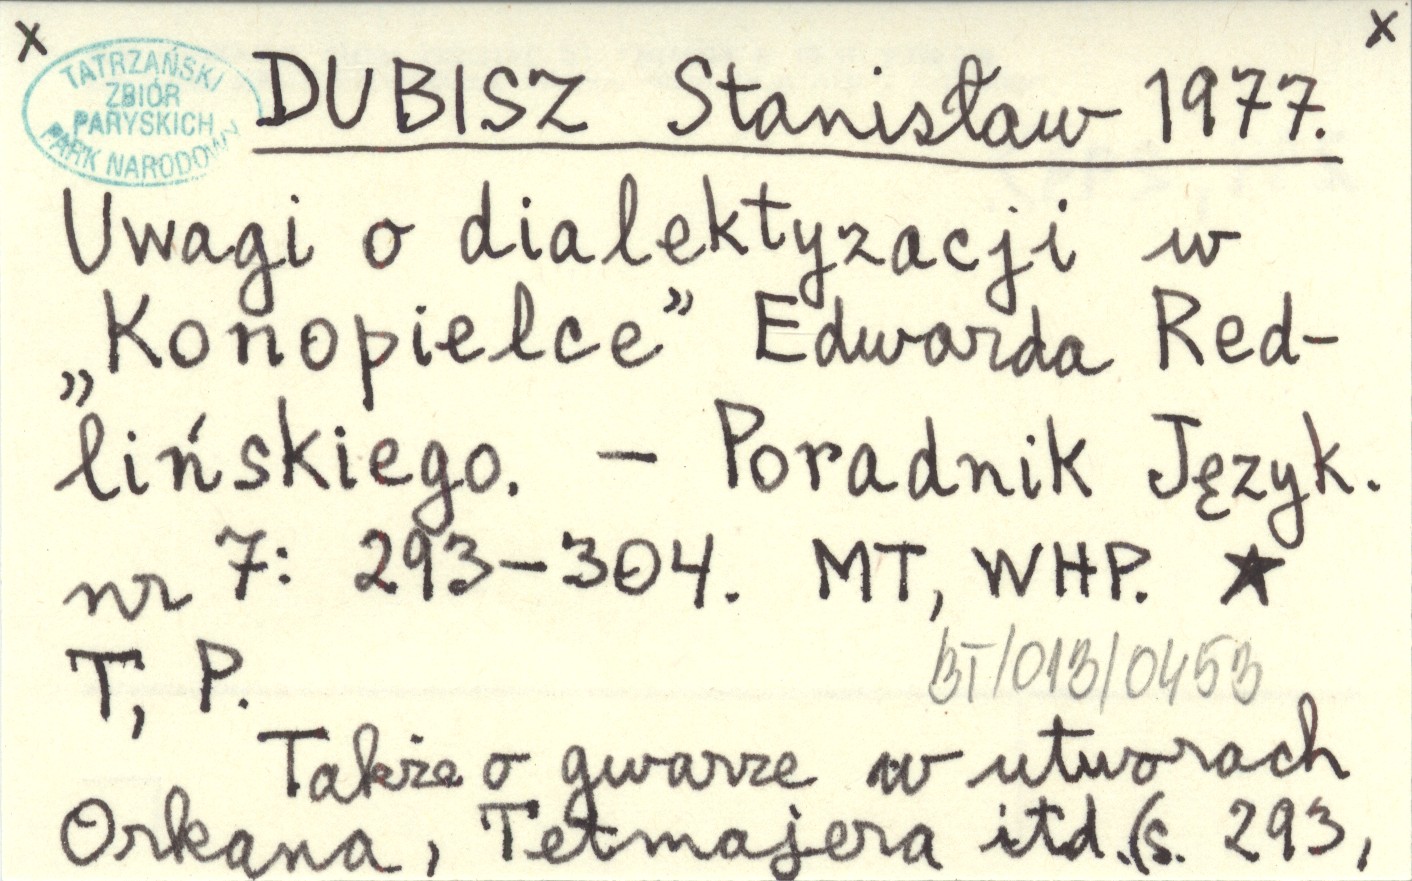 x x
TATRZAŃSKI
ZBIÓR
PARYSKICH
PARK NARODOWY
DUBISZ Stanisław 1977.
Uwagi o dialektyzacji w
„Konopielce” Edwarda Red-
lińskiego. – Poradnik Język.
nr 7: 293–304. MT, WHP. ★
T, P.
BT/013/0453
Także o gwarze w utworach
Orkana, Tetmajera itd. (s. 293,